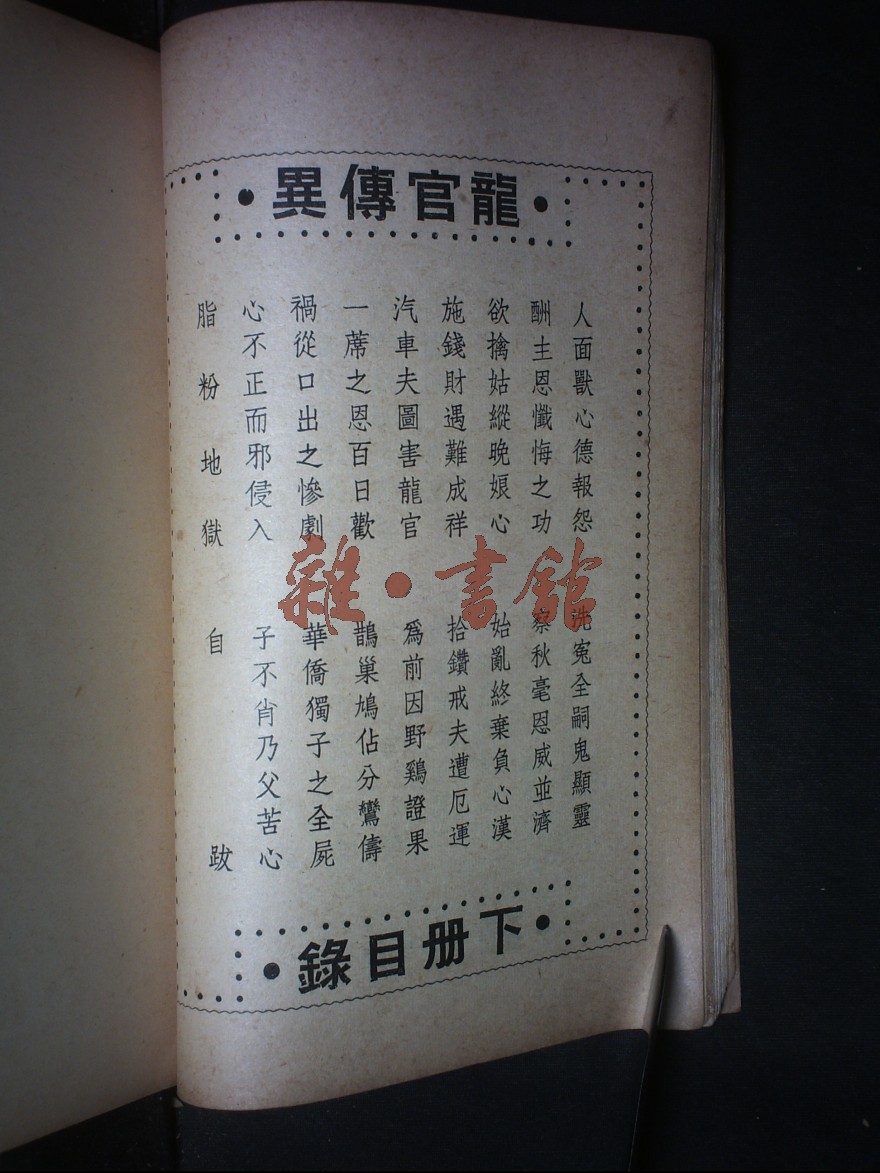 龍官傳異
人面獸心德報怨 洗冤全嗣鬼顯靈
酬主恩懺悔之功 察秋毫恩威並濟
欲擒姑縱晚娘心 始亂終棄負心漢
施錢財遇難成祥 拾鑽戒夫遭厄運
汽車夫圖害龍官 爲前因野鷄證果
一蓆之恩百日歡 鵲巢鳩佔分鸞儔
禍從口出之慘劇 華僑獨子之全屍
心不正而邪侵入 子不肖乃父苦心
脂粉地獄 自跋
下册目錄
雜·書館